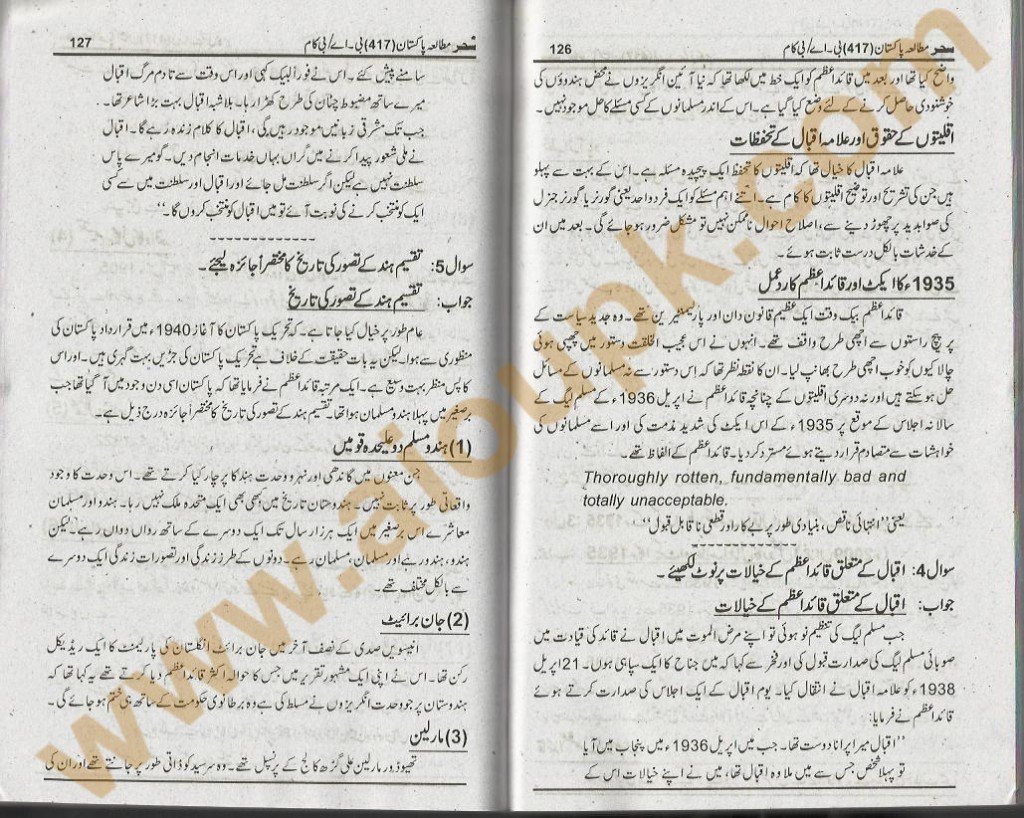 سحر مطالعہ پاکستان (417) بی۔اے/بی کام 126
واضح کیا تھا اور بعد میں قائداعظم کو ایک خط میں لکھا تھا کہ نیا آئین انگریزوں نے محض ہندوؤں کی
خوشنودی حاصل کرنے کے لئے وضع کیا گیا ہے۔ اس کے اندر مسلمانوں کے کسی مسئلے کا حل موجود نہیں۔
اقلیتوں کے حقوق اور علامہ اقبال کے تحفظات
علامہ اقبال کا خیال تھا کہ اقلیتوں کا تحفظ ایک پیچیدہ مسئلہ ہے۔ اس کے بہت سے پہلو
ہیں جن کی تشریح اور توضیح اقلیتوں کا کام ہے۔ اتنے اہم مسئلے کو ایک فرد واحد یعنی گورنر یا گورنر جنرل
کی صوابدید پر چھوڑ دینے سے، اصلاح احوال ناممکن نہیں تو مشکل ضرور ہو جائے گی۔ بعد میں ان
کے خدشات بالکل درست ثابت ہوئے۔
1935ء کا ایکٹ اور قائداعظم کا ردعمل
قائداعظم بیک وقت ایک عظیم قانون دان اور پارلیمنٹیرین تھے۔ وہ جدید سیاست کے
پر پیچ راستوں سے اچھی طرح واقف تھے۔ انہوں نے اس عجیب الخلقت دستور میں چھپی ہوئی
چالاکیوں کو خوب اچھی طرح بھانپ لیا۔ ان کا نقطہ نظر تھا کہ اس دستور سے نہ مسلمانوں کے مسائل
حل ہو سکتے ہیں اور نہ دوسری اقلیتوں کے چنانچہ قائداعظم نے اپریل 1936ء کے مسلم لیگ کے
سالانہ اجلاس کے موقع پر 1935ء کے اس ایکٹ کی شدید مذمت کی اور اسے مسلمانوں کی
خواہشات سے متصادم قرار دیتے ہوئے مسترد کر دیا۔ قائداعظم کے الفاظ تھے۔
Thoroughly rotten, fundamentally bad and
totally unacceptable.
یعنی "انتہائی ناقص، بنیادی طور پر بے کار اور قطعی ناقابل قبول"
سوال 4: اقبال کے متعلق قائداعظم کے خیالات پر نوٹ لکھیئے۔
جواب: اقبال کے متعلق قائداعظم کے خیالات
جب مسلم لیگ کی تنظیم نو ہوئی تو اپنے مرض الموت میں اقبال نے قائد کی قیادت میں
صوبائی مسلم لیگ کی صدارت قبول کی اور فخر سے کہا کہ میں جناح کا ایک سپاہی ہوں۔ 21 اپریل
1938ء کو علامہ اقبال نے انتقال کیا۔ یوم اقبال کے ایک اجلاس کی صدارت کرتے ہوئے
قائداعظم نے فرمایا:
"اقبال میرا پرانا دوست تھا۔ جب میں اپریل 1936ء میں پنجاب میں آیا
تو پہلا شخص جس سے میں ملا وہ اقبال تھا، میں نے اپنے خیالات اس کے
سحر مطالعہ پاکستان (417) بی۔اے/بی کام 127
سامنے پیش کئے۔ اس نے فوراً لبیک کہی اور اس وقت سے تادم مرگ اقبال
میرے ساتھ مضبوط چٹان کی طرح کھڑا رہا۔ بلاشبہ اقبال بہت بڑا شاعر تھا۔
جب تک مشرقی زبانیں موجود رہیں گی، اقبال کا کلام زندہ رہے گا۔ اقبال
نے ملی شعور پیدا کرنے میں گراں بہا خدمات انجام دیں۔ گو میرے پاس
سلطنت نہیں ہے لیکن اگر سلطنت مل جائے اور اقبال اور سلطنت میں سے کسی
ایک کو منتخب کرنے کی نوبت آئے تو میں اقبال کو منتخب کروں گا۔"
سوال 5: تقسیم ہند کے تصور کی تاریخ کا مختصراً جائزہ لیجئے۔
جواب: تقسیم ہند کے تصور کی تاریخ
عام طور پر خیال کیا جاتا ہے کہ تحریک پاکستان کا آغاز 1940ء میں قرارداد پاکستان کی
منظوری سے ہوا۔ لیکن یہ بات حقیقت کے خلاف ہے تحریک پاکستان کی جڑیں بہت گہری ہیں۔ اور اس
کا پس منظر بہت وسیع ہے۔ ایک مرتبہ قائداعظم نے فرمایا تھا کہ پاکستان اسی دن وجود میں آ گیا تھا جب
برصغیر میں پہلا ہندو مسلمان ہوا تھا۔ تقسیم ہند کے تصور کی تاریخ کا مختصراً جائزہ درج ذیل ہے۔
(1) ہندو مسلم دو علیحدہ قومیں
جن معنوں میں گاندھی اور نہرو وحدت ہند کا پرچار کیا کرتے تھے۔ اس وحدت کا وجود
واقعاتی طور پر ثابت نہیں۔ ہندوستان تاریخ میں کبھی بھی ایک متحدہ ملک نہیں رہا۔ ہندو اور مسلمان
معاشرے اس برصغیر میں ایک ہزار سال تک ایک دوسرے کے ساتھ رواں دواں رہے۔ لیکن
ہندو، ہندو رہے اور مسلمان، مسلمان رہے۔ دونوں کے طرز زندگی اور تصورات زندگی ایک دوسرے
سے بالکل مختلف تھے۔
(2) جان برائیٹ
انیسویں صدی کے نصف آخر میں جان برائٹ انگلستان کی پارلیمنٹ کا ایک ریڈیکل
رکن تھا۔ اس نے اپنی ایک مشہور تقریر میں جس کا حوالہ اکثر قائداعظم دیا کرتے تھے یہ کہا تھا کہ
ہندوستان پر جو وحدت انگریزوں نے مسلط کی ہے وہ برطانوی حکومت کے ساتھ ہی ختم ہو جائے گی۔
(3) مارلین
تھیوڈور مارلین علی گڑھ کالج کے پرنسپل تھے۔ وہ سرسید کو ذاتی طور پر جانتے تھے اور ان کی
www.aioupk.com